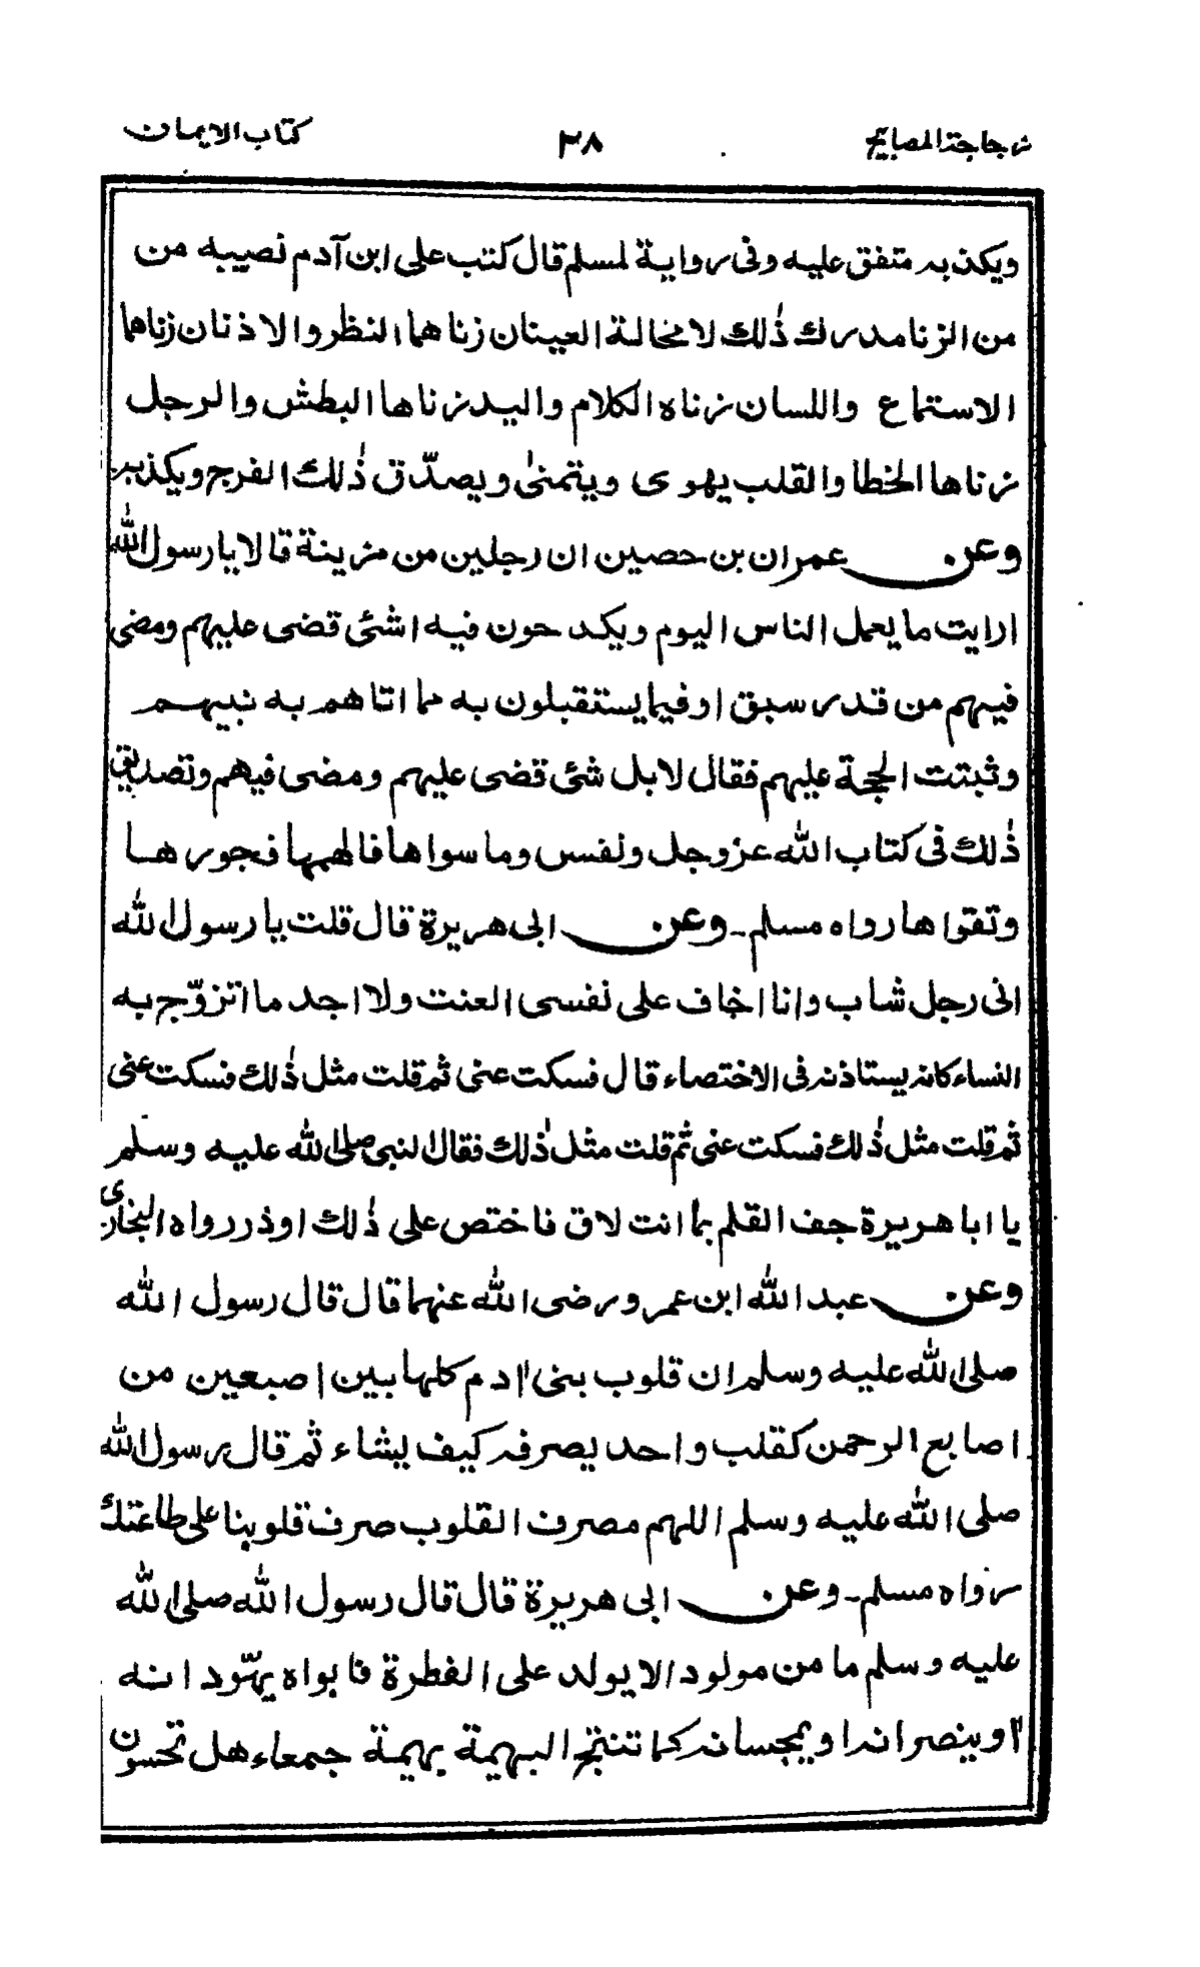 زجاجة المصابيح ٢٨ كتاب الايمان
ويكذبه متفق عليه وفى رواية لمسلم قال كتب على ابن آدم نصيبه من
من الزنا مدرك ذٰلك لا محالة العينان زناهما النظر والاذنان زناهما
الاستماع واللسان زناه الكلام واليد زناها البطش والرجل
زناها الخطا والقلب يهوى ويتمنىٰ ويصدّق ذٰلك الفرج ويكذبه
وعن عمران بن حصين ان رجلين من مزينة قالا يا رسول الله
ارايت ما يعمل الناس اليوم ويكدحون فيه اشئى قضى عليهم ومضى
فيهم من قدر سبق او فيما يستقبلون به مما اتاهم به نبيهم
وثبتت الحجة عليهم فقال لا بل شئى قضى عليهم ومضى فيهم وتصديق
ذٰلك فى كتاب الله عزوجل ونفس وما سواها فالهمها فجورها
وتقواها رواه مسلم۔ وعن ابى هريرة قال قلت يا رسول الله
انى رجل شاب وانا اخاف على نفسى العنت ولا اجد ما اتزوّج به
النساء كانه يستاذنه فى الاختصاء قال فسكت عنى ثم قلت مثل ذٰلك فسكت عنى
ثم قلت مثل ذٰلك فسكت عنى ثم قلت مثل ذٰلك فقال النبى صلى الله عليه وسلم
يا ابا هريرة جف القلم بما انت لاق فاختص على ذٰلك او ذر رواه البخارى
وعن عبد الله ابن عمرو رضى الله عنهما قال قال رسول الله
صلى الله عليه وسلم ان قلوب بنى اٰدم كلها بين اصبعين من
اصابع الرحمن كقلب واحد يصرفه كيف يشاء ثم قال رسول الله
صلى الله عليه وسلم اللهم مصرف القلوب صرف قلوبنا على طاعتك
رواه مسلم۔ وعن ابى هريرة قال قال رسول الله صلى الله
عليه وسلم ما من مولود الا يولد على الفطرة فابواه يهّودانه
او ينصرانه او يمجسانه كما تنتج البهيمة بهيمة جمعاء هل تحسون